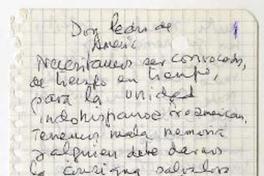 Don Pedro de
Améric
Necesitamos ser convocados,
de tiempo en tiempo,
para la unidad
indohispano
Tenemos mala memoria
y alguien debe darnos
la consigna salvadora